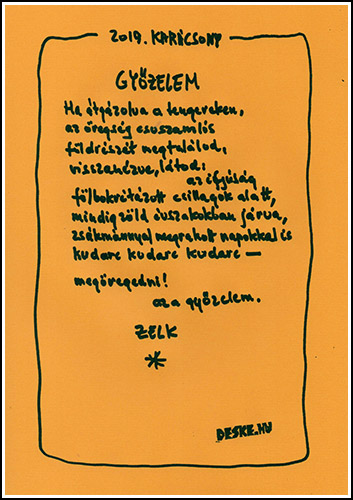 2019. KARÁCSONY
GYŐZELEM
Ha átgázolva a tengereken,
az öregség csuszamlós
földrészét megtalálod,
visszanézve, látod:
az ifjúság
fölbokrétázott csillagok alatt,
mindig zöld évszakokban járva,
zsákmánnyal megrakott napokkal és
kudarc kudarc kudarc —
megöregedni!
az a győzelem.
ZELK
DESKE.HU